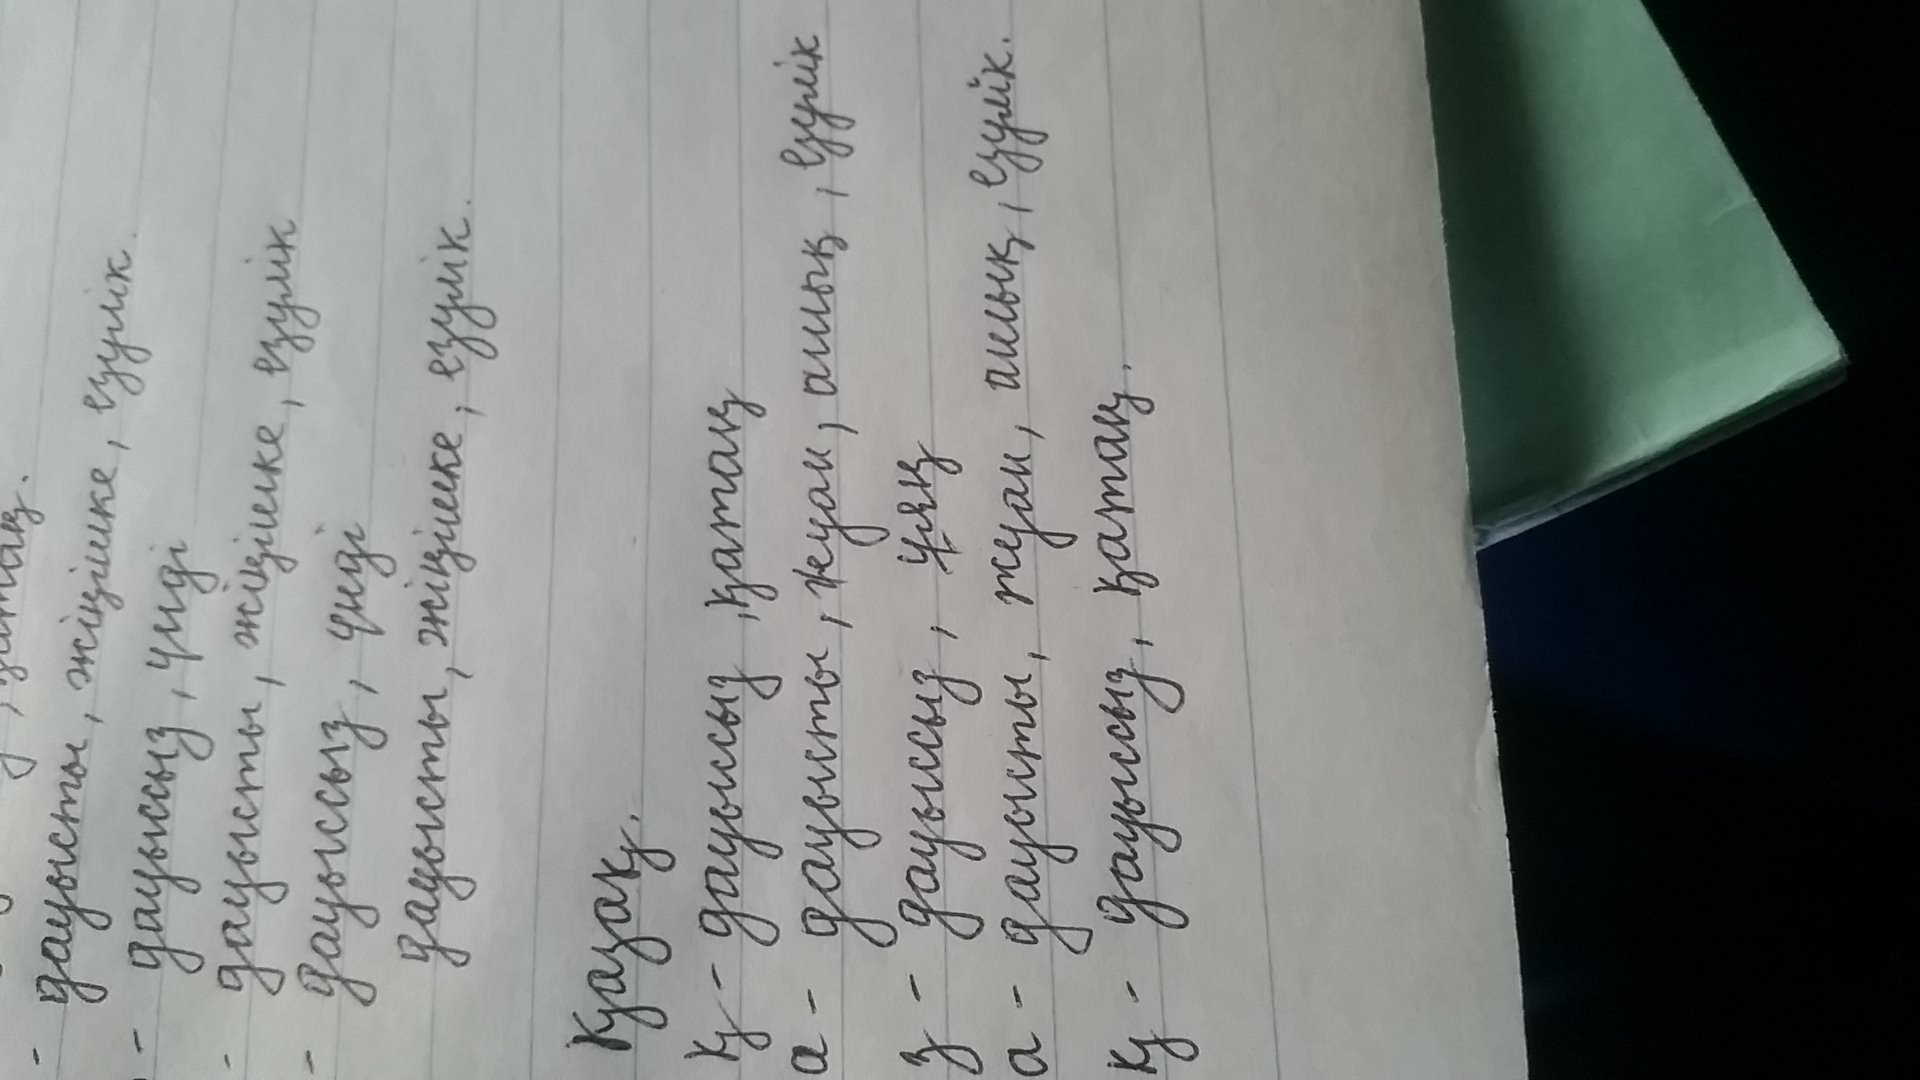 - дауысты, жіңішке, езулік.
- дауыссыз, үнді
- дауысты, жіңішке, езулік
- дауыссыз, үнді
дауысты, жіңішке, езулік.
Қазақ.
қ - дауыссыз, қатаң
а - дауысты, жуан, ашық, езулік
з - дауыссыз, ұяң
а - дауысты, жуан, ашық, езулік.
қ - дауыссыз, қатаң.